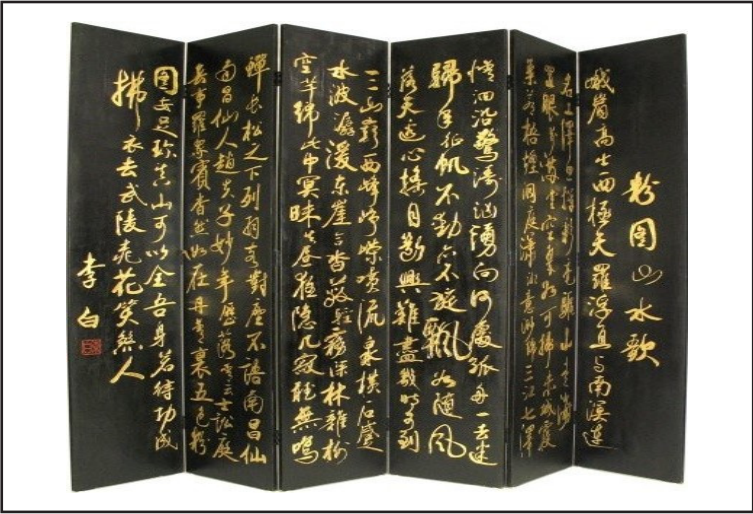 粉圖山水歌
峨眉高出西極天羅浮直与南溟連
名工繹思揮彩筆驅山走海
置眼前滿堂空翠如可掃赤城霞
氣蒼梧煙洞庭瀟湘意渺綿三江七澤
情洄沿驚濤洶湧向何處孤舟一去迷
歸年征帆不動亦不旋飄如随風
落天邊心搖目斷興難盡幾時可到
三山巔西峰崢嶸噴流泉橫石蹙
水波潺湲东崖合沓蔽輕霧深林雜樹
空芊綿此中冥昧失昼夜隱几寂聽無鳴
蟬長松之下列羽客對座不語南昌仙
南昌仙人趙夫子妙年歷落青云士訟庭
無事羅眾賓杳然如在丹青裏五色粉
圖安足珍真山可以全吾身若待功成
拂衣去武陵桃花笑煞人
李白